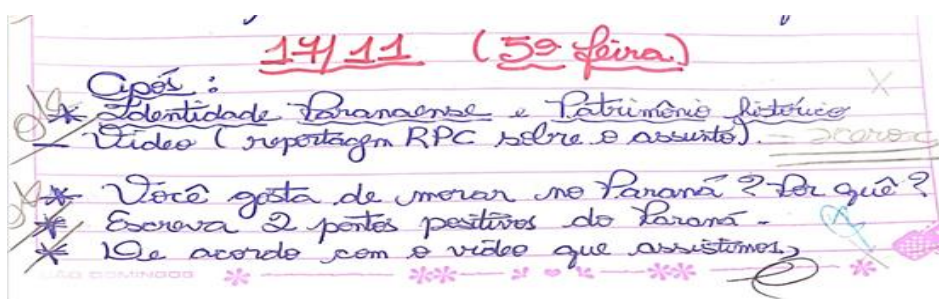 17/11 (5ª feira)
Após:
* Identidade Paranaense e Patrimônio histórico
- Vídeo (reportagem RPC sobre o assunto). - xerox
* Você gosta de morar no Paraná? Por quê?
* Escreva 2 pontos positivos do Paraná.
* De acordo com o vídeo que assistimos,
SÃO DOMINGOS